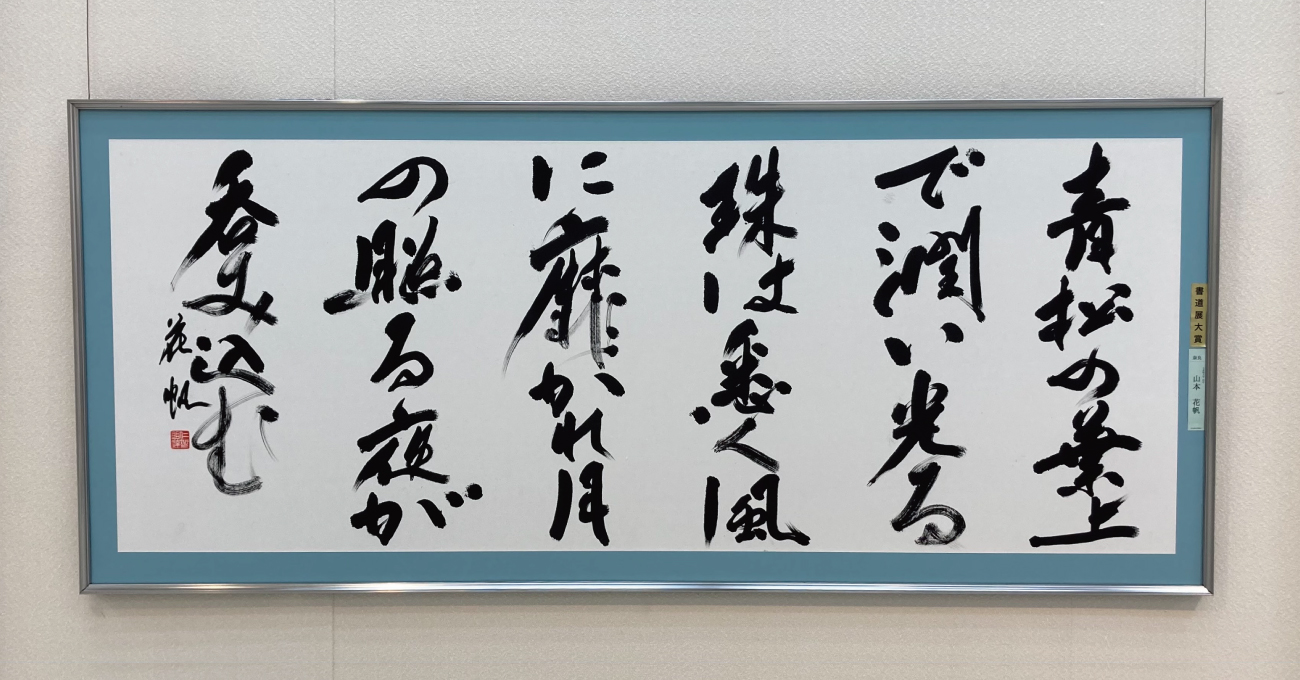 青松の葉上
で潤い光る
珠は悉く風
に靡かれ月
の照る夜が
呑み込む
花帆
書道展大賞
山本 花帆